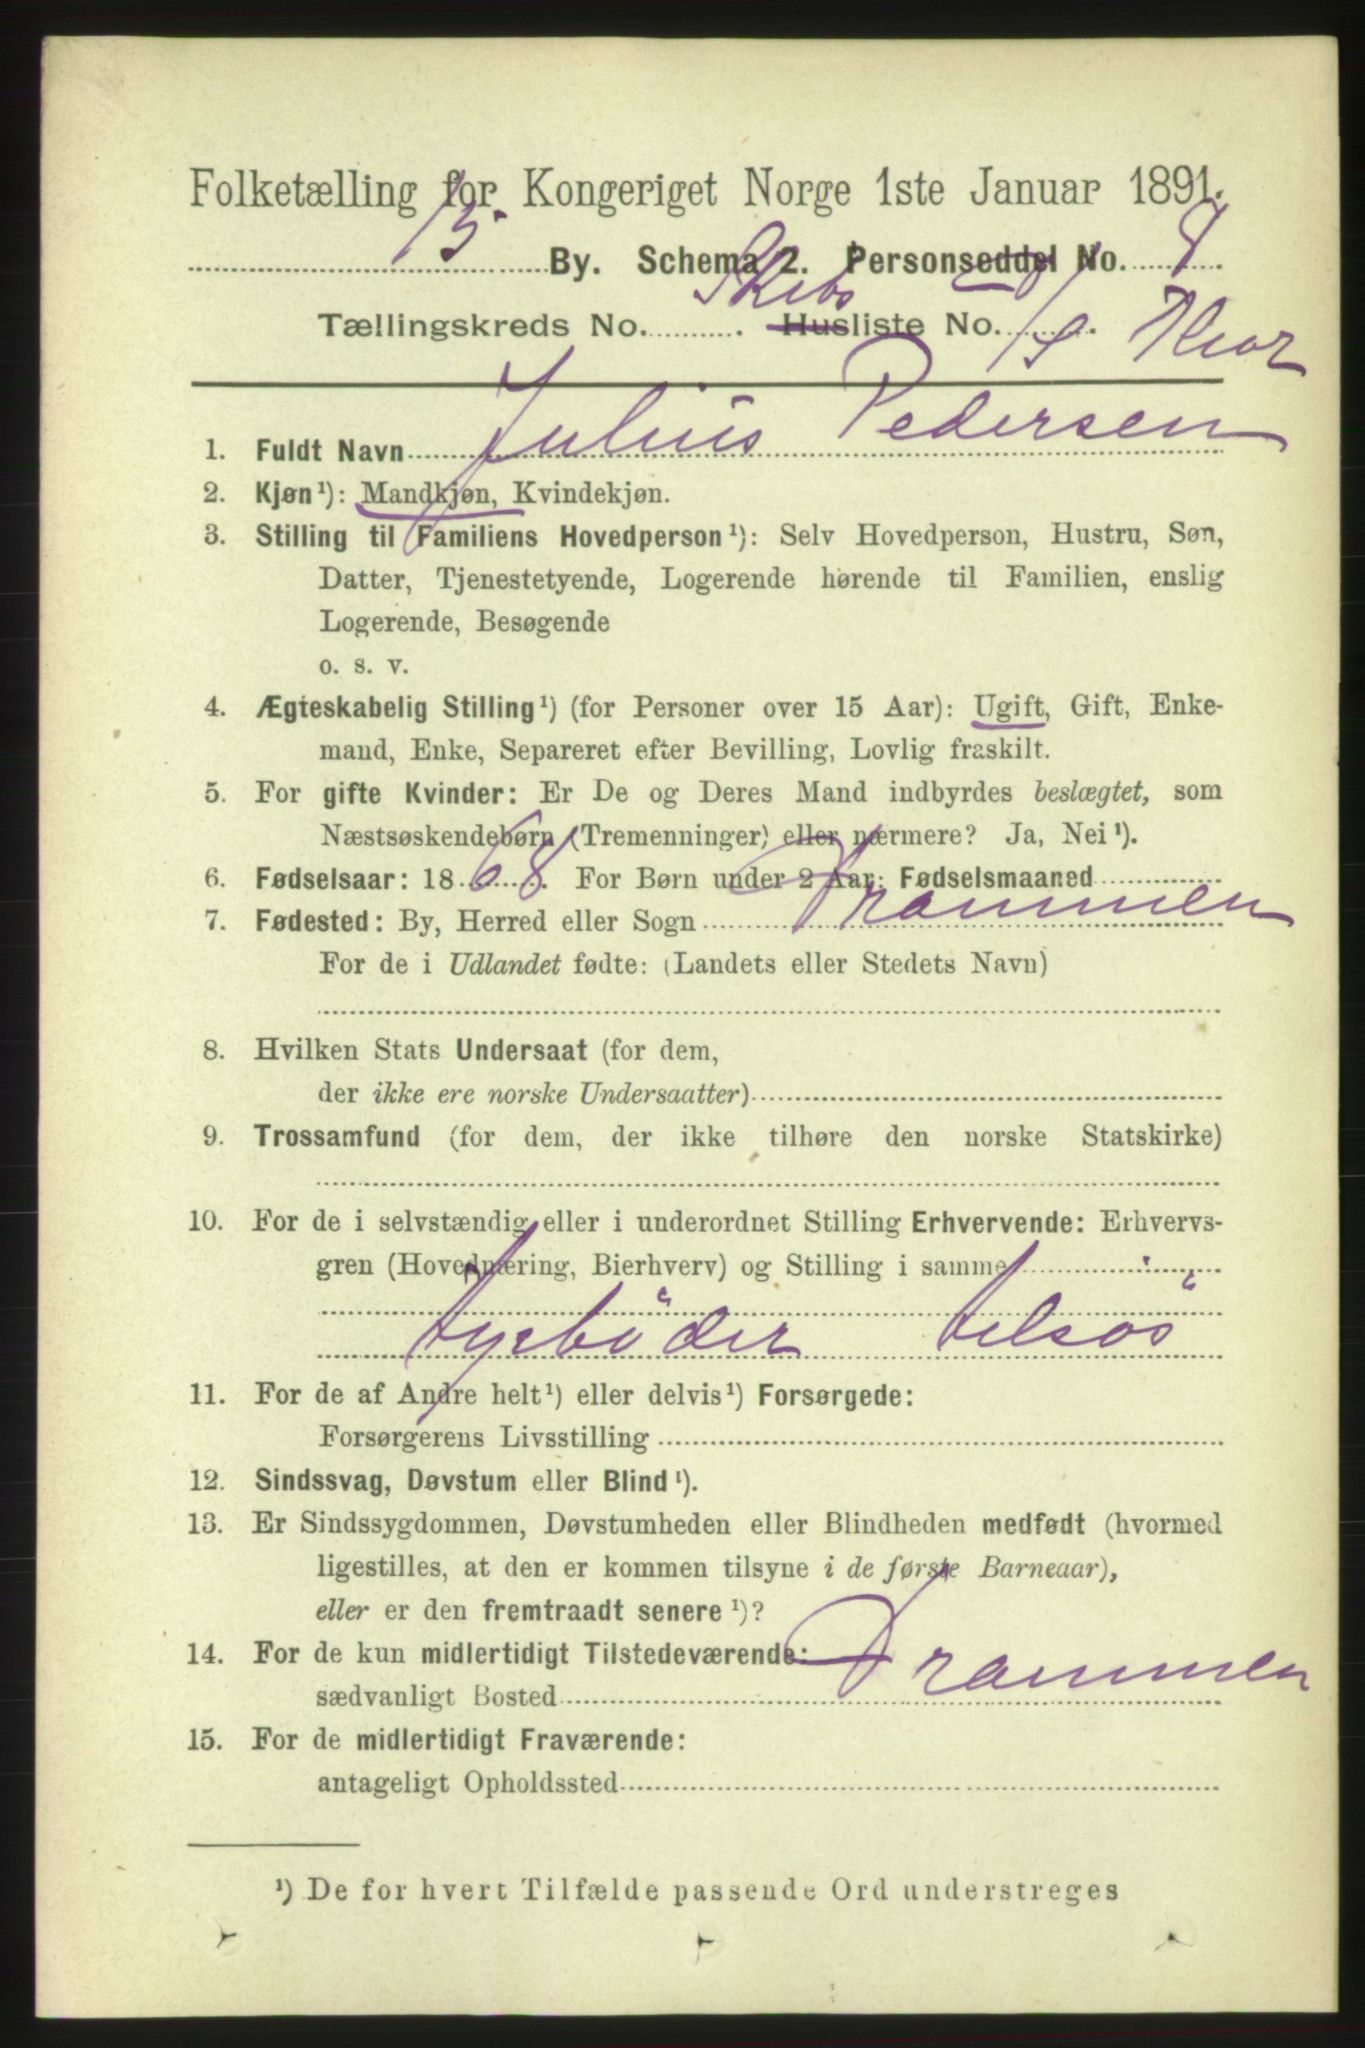 Folketælling for Kongeriget Norge 1ste Januar 1891.
15 By. Schema 2. Personseddel No. 8
Tællingskreds No. Skibs Husliste No. 1 S/S Thor
1. Fuldt Navn Julius Pedersen
2. Kjøn¹): Mandkjøn, Kvindekjøn.
3. Stilling til Familiens Hovedperson¹): Selv Hovedperson, Hustru, Søn,
Datter, Tjenestetyende, Logerende hørende til Familien, enslig
Logerende, Besøgende
o. s. v.
4. Ægteskabelig Stilling¹) (for Personer over 15 Aar): Ugift, Gift, Enke-
mand, Enke, Separeret efter Bevilling, Lovlig fraskilt.
5. For gifte Kvinder: Er De og Deres Mand indbyrdes beslægtet, som
Næstsøskendebørn (Tremenninger) eller nærmere? Ja, Nei¹).
6. Fødselsaar: 1868. For Børn under 2 Aar: Fødselsmaaned
7. Fødested: By, Herred eller Sogn Drammen
For de i Udlandet fødte: (Landets eller Stedets Navn)
8. Hvilken Stats Undersaat (for dem,
der ikke ere norske Undersaatter)
9. Trossamfund (for dem, der ikke tilhøre den norske Statskirke)
10. For de i selvstændig eller i underordnet Stilling Erhvervende: Erhvervs-
gren (Hovednæring, Bierhverv) og Stilling i samme
fyrböder
11. For de af Andre helt¹) eller delvis¹) Forsørgede:
Forsørgerens Livsstilling
12. Sindssvag, Døvstum eller Blind¹).
13. Er Sindssygdommen, Døvstumheden eller Blindheden medfødt (hvormed
ligestilles, at den er kommen tilsyne i de første Barneaar),
eller er den fremtraadt senere¹)?
14. For de kun midlertidigt Tilstedeværende:
sædvanligt Bosted Drammen
15. For de midlertidigt Fraværende:
antageligt Opholdssted
¹) De for hvert Tilfælde passende Ord understreges